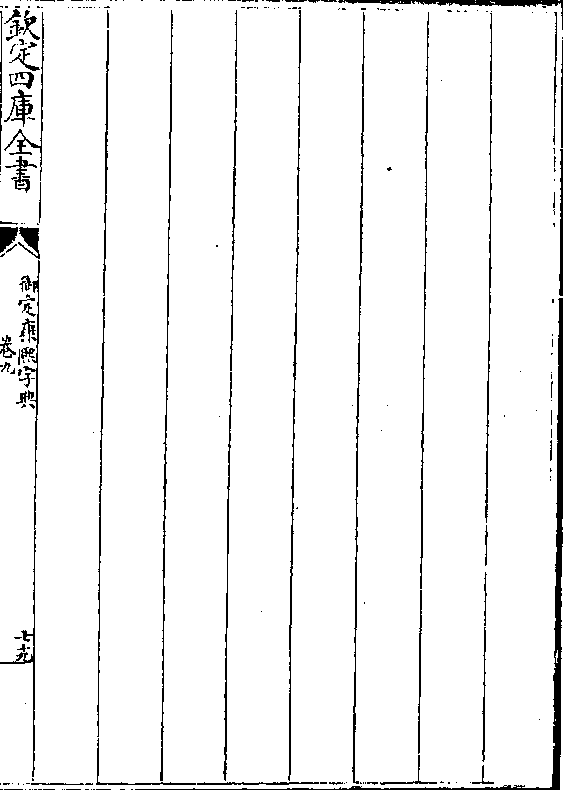 欽定四庫全書
御定康熙字典
卷九
七十九